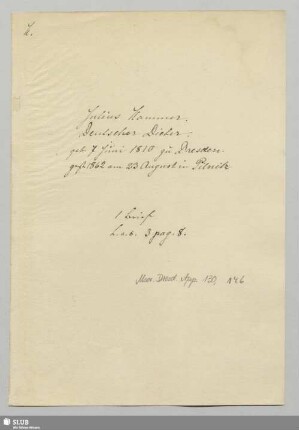 H.
Julius Hammer.
Deutscher Dichter.
geb. 7 Juni 1810 zu Dresden
gest. 1862 am 23 August in Pilnitz
1 Brief
L. a. s. 3 pag. 8.
Mscr. Dresd. App. 130, 446
SLUB
Wir führen Wissen.